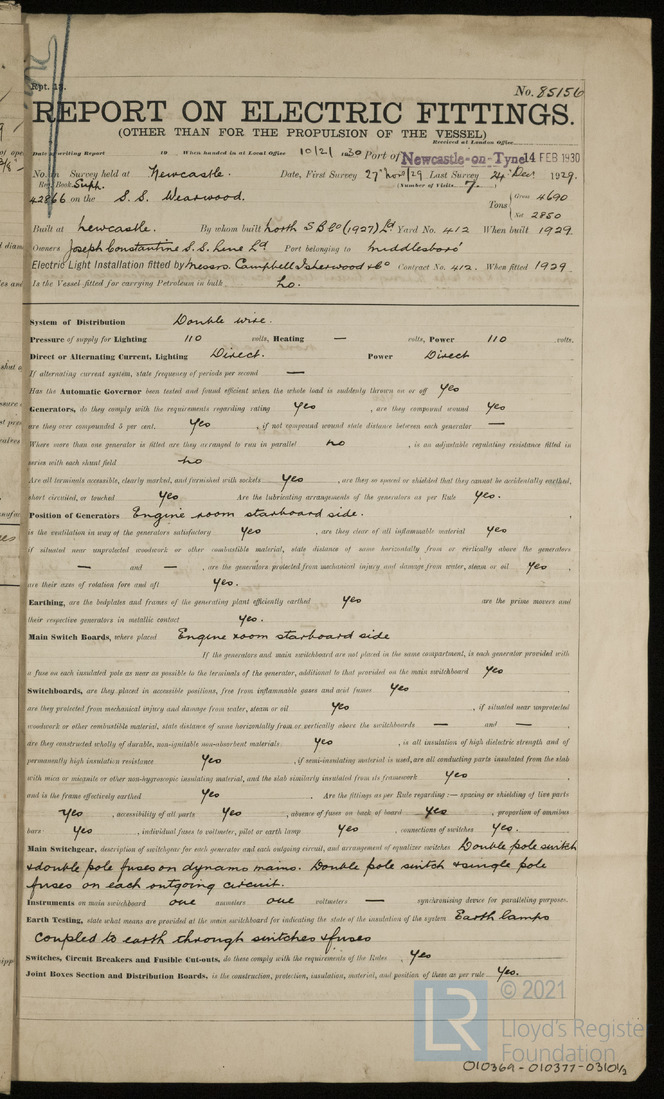 Rpt. 13.
No. 85156
REPORT ON ELECTRIC FITTINGS.
(OTHER THAN FOR THE PROPULSION OF THE VESSEL)
Received at London Office
Date of writing Report 19 When handed in at Local Office 10/2/ 1930 Port of Newcastle-on-Tyne 14 FEB 1930
No. in Survey held at Newcastle. Date, First Survey 27th Nov/29 Last Survey 24 Dec. 1929.
Reg. Book. Supp. (Number of Visits 7.)
42866 on the S. S. Wearwood. Tons { Gross 4690
Net 2850
Built at Newcastle. By whom built North S B Co (1927) Ld Yard No. 412 When built 1929.
Owners Joseph Constantine S. S. Line Ld Port belonging to Middlesboro'
Electric Light Installation fitted by Messrs. Campbell Isherwood & Co Contract No. 412. When fitted 1929
Is the Vessel fitted for carrying Petroleum in bulk No.
System of Distribution Double wire.
Pressure of supply for Lighting 110 volts, Heating — volts, Power 110 volts.
Direct or Alternating Current, Lighting Direct. Power Direct
If alternating current system, state frequency of periods per second —
Has the Automatic Governor been tested and found efficient when the whole load is suddenly thrown on or off Yes
Generators, do they comply with the requirements regarding rating Yes , are they compound wound Yes
are they over compounded 5 per cent. Yes , if not compound wound state distance between each generator —
Where more than one generator is fitted are they arranged to run in parallel No , is an adjustable regulating resistance fitted in
series with each shunt field No
Are all terminals accessible, clearly marked, and furnished with sockets Yes , are they so spaced or shielded that they cannot be accidentally earthed,
short circuited, or touched Yes Are the lubricating arrangements of the generators as per Rule Yes.
Position of Generators Engine room starboard side.
is the ventilation in way of the generators satisfactory Yes , are they clear of all inflammable material Yes
if situated near unprotected woodwork or other combustible material, state distance of same horizontally from or vertically above the generators
— and — , are the generators protected from mechanical injury and damage from water, steam or oil Yes
are their axes of rotation fore and aft Yes.
Earthing, are the bedplates and frames of the generating plant efficiently earthed Yes are the prime movers and
their respective generators in metallic contact Yes.
Main Switch Boards, where placed Engine room starboard side
If the generators and main switchboard are not placed in the same compartment, is each generator provided with
a fuse on each insulated pole as near as possible to the terminals of the generator, additional to that provided on the main switchboard Yes
Switchboards, are they placed in accessible positions, free from inflammable gases and acid fumes Yes
are they protected from mechanical injury and damage from water, steam or oil Yes , if situated near unprotected
woodwork or other combustible material, state distance of same horizontally from or vertically above the switchboards — and —
are they constructed wholly of durable, non-ignitable non-absorbent materials Yes , is all insulation of high dielectric strength and of
permanently high insulation resistance Yes , if semi-insulating material is used, are all conducting parts insulated from the slab
with mica or micanite or other non-hygroscopic insulating material, and the slab similarly insulated from its framework Yes
and is the frame effectively earthed Yes . Are the fittings as per Rule regarding :— spacing or shielding of live parts
Yes , accessibility of all parts Yes , absence of fuses on back of board Yes , proportion of omnibus
bars Yes , individual fuses to voltmeter, pilot or earth lamp Yes , connections of switches Yes.
Main Switchgear, description of switchgear for each generator and each outgoing circuit, and arrangement of equalizer switches Double pole switch
& double pole fuses on dynamo mains. Double pole switch & single pole
fuses on each outgoing circuit.
Instruments on main switchboard one ammeters one voltmeters — synchronising device for paralleling purposes.
Earth Testing, state what means are provided at the main switchboard for indicating the state of the insulation of the system Earth lamps
coupled to earth through switches & fuses
Switches, Circuit Breakers and Fusible Cut-outs, do these comply with the requirements of the Rules Yes
Joint Boxes Section and Distribution Boards, is the construction, protection, insulation, material, and position of these as per rule Yes.
LR
© 2021
Lloyd's Register
Foundation
010369-010377-0310 1/3